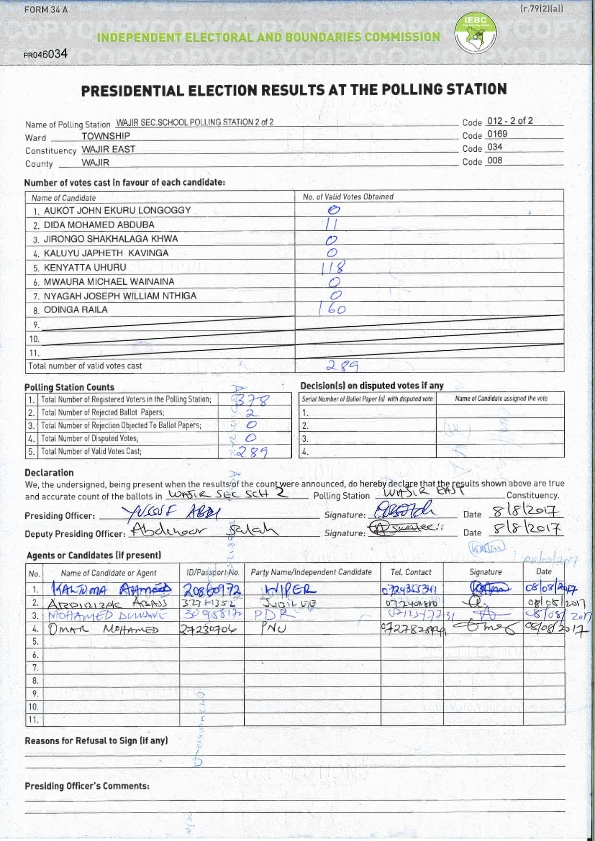 FORM 34 A
(r.79(2)(a))
INDEPENDENT ELECTORAL AND BOUNDARIES COMMISSION
IEBC
PR046034
PRESIDENTIAL ELECTION RESULTS AT THE POLLING STATION
Name of Polling Station WAJIR SEC.SCHOOL POLLING STATION 2 of 2 Code 012 - 2 of 2
Ward TOWNSHIP Code 0169
Constituency WAJIR EAST Code 034
County WAJIR Code 008
Number of votes cast in favour of each candidate:
Name of Candidate No. of Valid Votes Obtained
1. AUKOT JOHN EKURU LONGOGGY 0
2. DIDA MOHAMED ABDUBA 11
3. JIRONGO SHAKHALAGA KHWA 0
4. KALUYU JAPHETH KAVINGA 0
5. KENYATTA UHURU 118
6. MWAURA MICHAEL WAINAINA 0
7. NYAGAH JOSEPH WILLIAM NTHIGA 0
8. ODINGA RAILA 160
9.
10.
11.
Total number of valid votes cast 289
Polling Station Counts
1. Total Number of Registered Voters in the Polling Station; 378
2. Total Number of Rejected Ballot Papers; 2
3. Total Number of Rejection Objected To Ballot Papers; 0
4. Total Number of Disputed Votes; 0
5. Total Number of Valid Votes Cast; 289
Decision(s) on disputed votes if any
Serial Number of Ballot Paper (s) with disputed vote Name of Candidate assigned the vote
1.
2.
3.
4.
Declaration
We, the undersigned, being present when the results of the count were announced, do hereby declare that the results shown above are true
and accurate count of the ballots in WAJIR SEC SCH 2 Polling Station WAJIR EAST Constituency.
Presiding Officer: YUSSUF ABDI Signature: Date 8/8/2017
Deputy Presiding Officer: Abdinoor Salah Signature: Date 8/8/2017
Agents or Candidates (if present)
No. Name of Candidate or Agent ID/Passport-No. Party Name/Independent Candidate Tel. Contact Signature Date
1. KALTUMA AHMED 20860972 WIPER 08/08/2017
2. 08/08/2017
3. MOHAMED PDR 08/08/2017
4. OMAR MOHAMED 27230706 PNU 08/08/2017
5.
6.
7.
8.
9.
10.
11.
Reasons for Refusal to Sign (if any)
Presiding Officer's Comments: